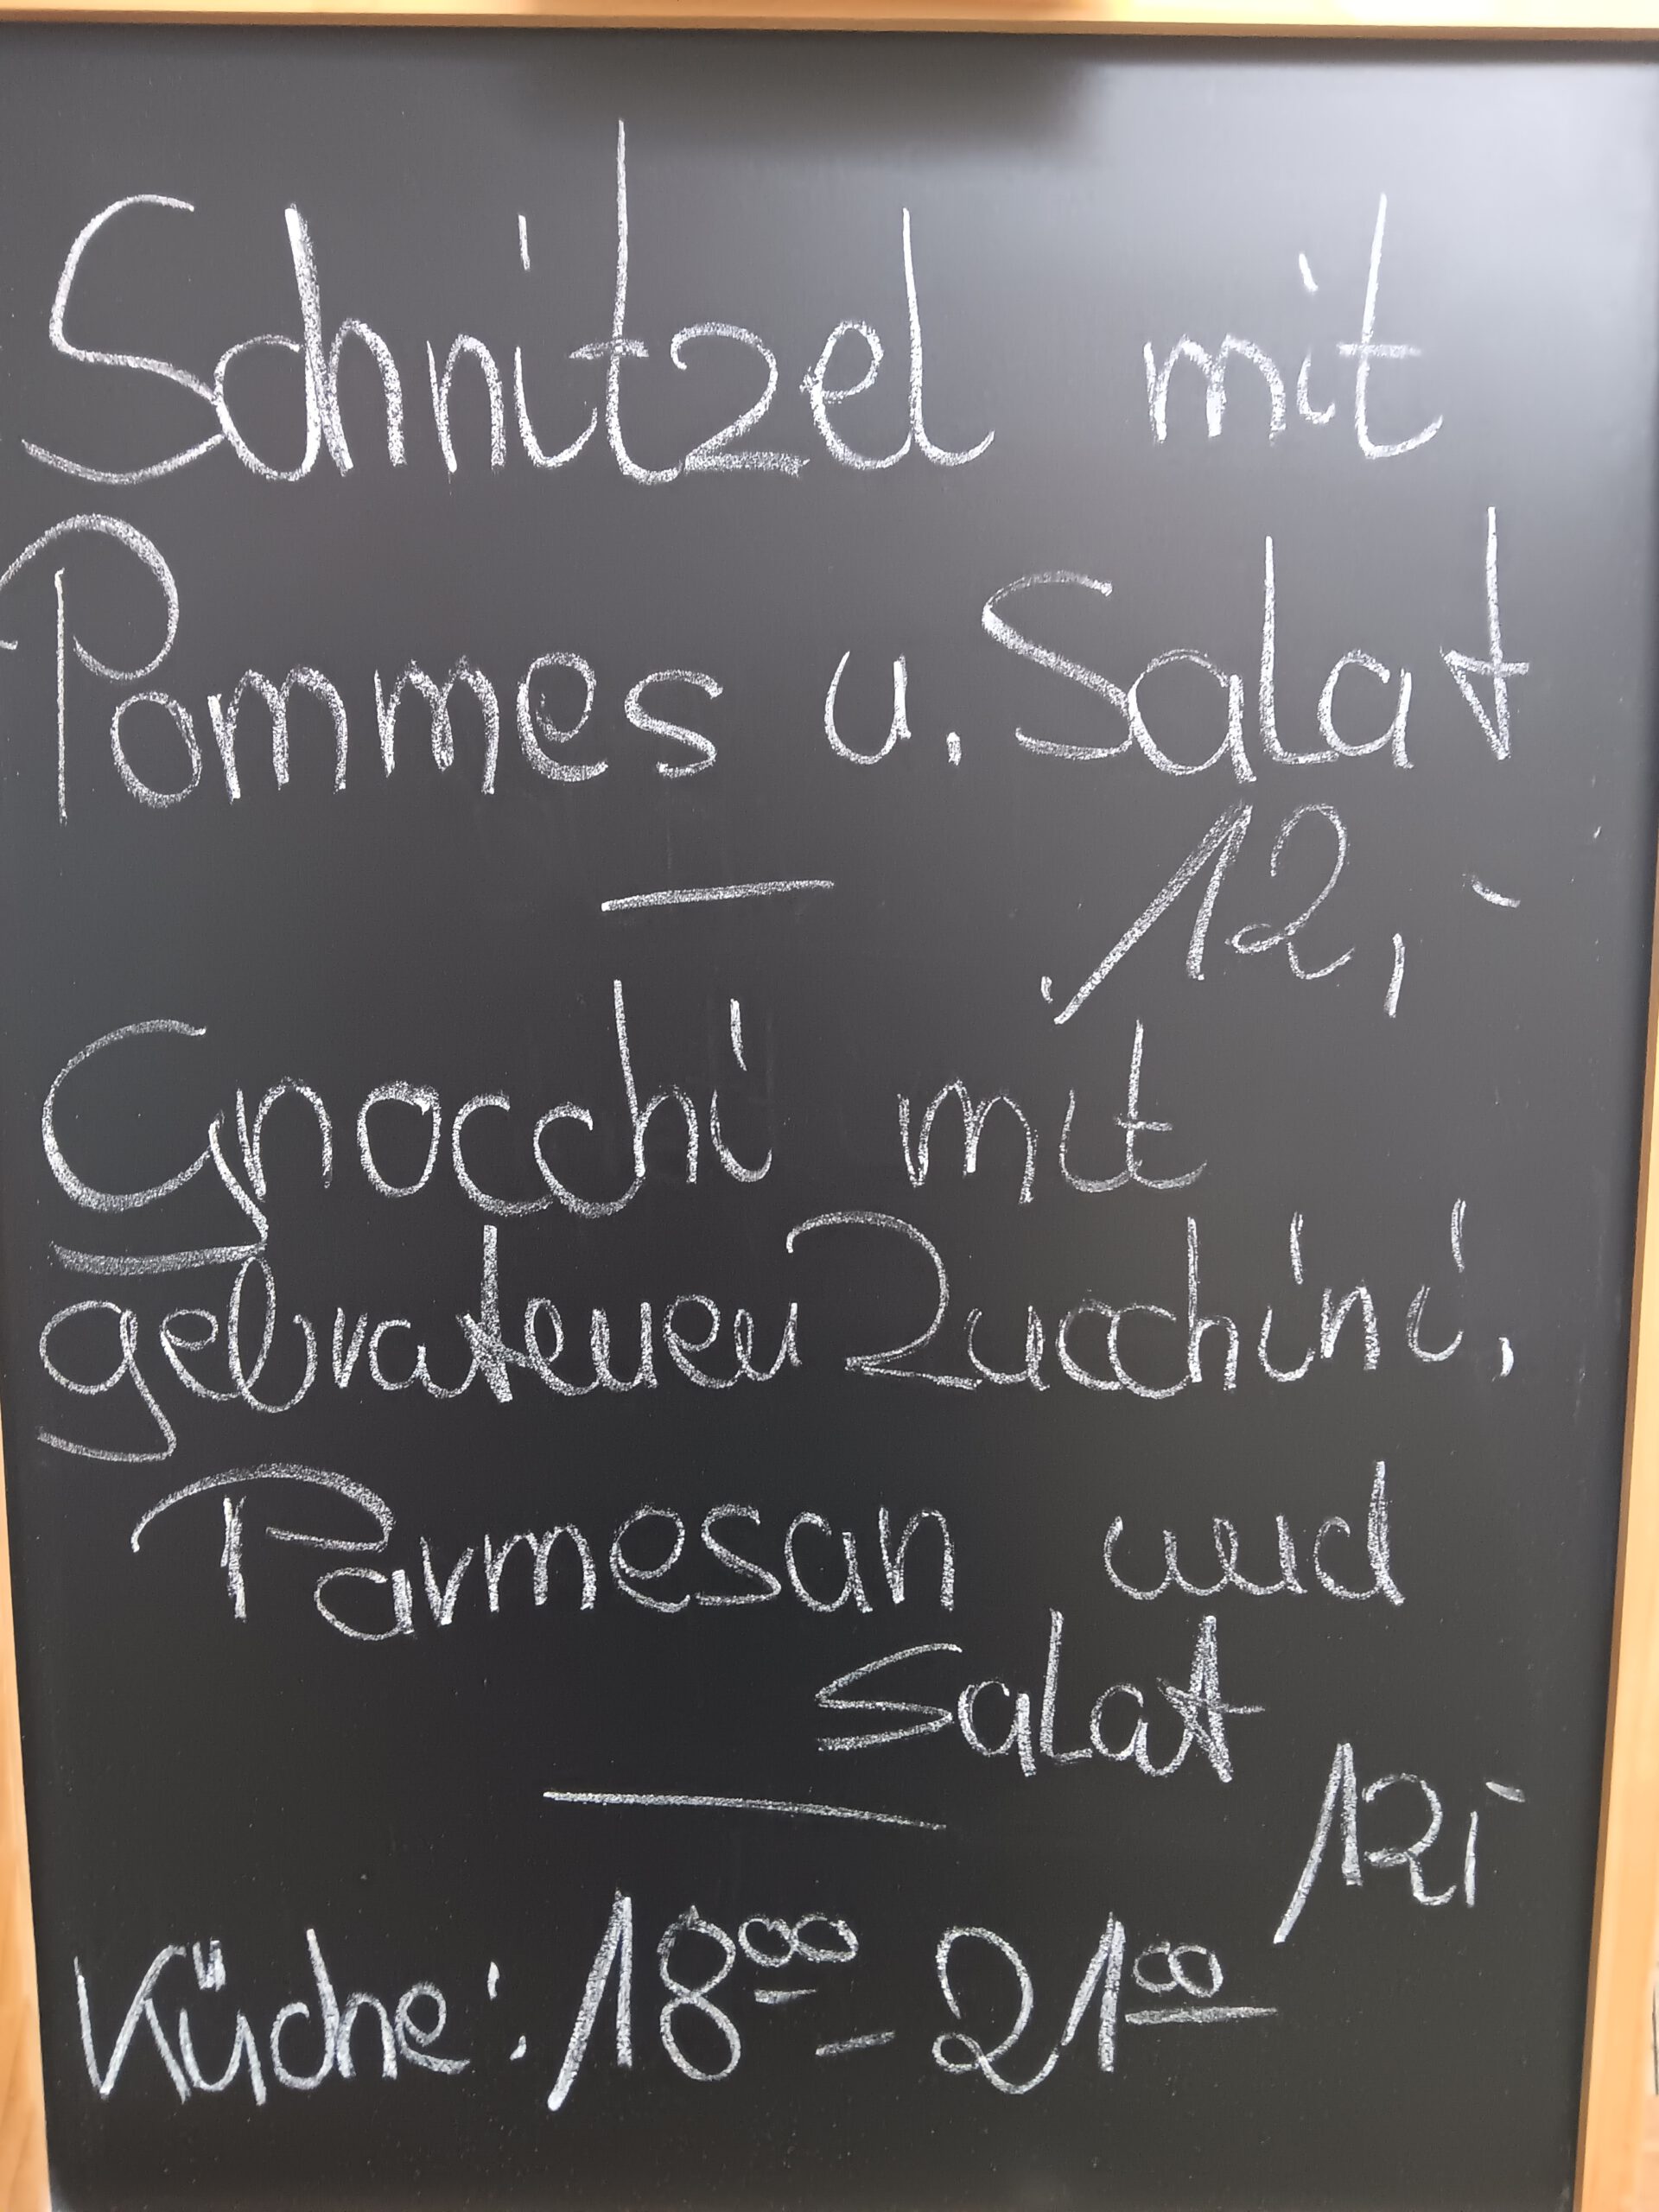 Schnitzel mit
Pommes u. Salat
12,-
Gnocchi mit
gebratenen Zucchini,
Parmesan und
Salat
12,-
Küche: 18⁰⁰ - 21⁰⁰